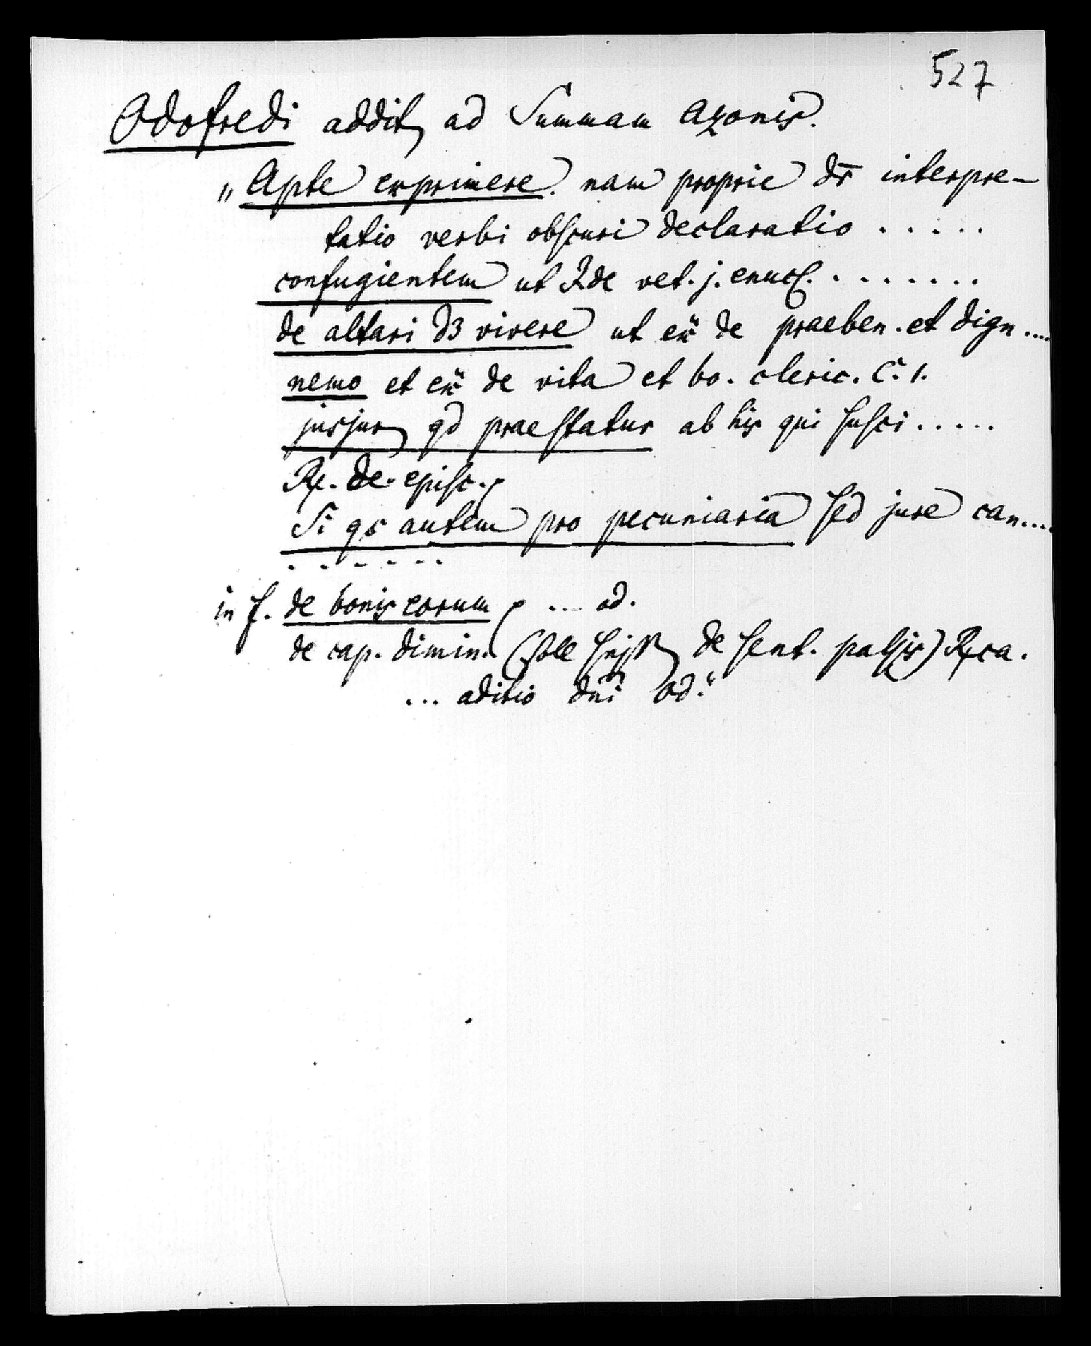 527
Odofredi addit, ad Summam Azonis.
„Apte exprimere. nam proprie dr̄ interpre-
tatio verbi obscuri declaratio . . . . .
confugientem ut de vet. j. enucl. . . . . . . .
de altari dʒ vivere ut ex̄ de praeben. et dign....
nemo et ex̄ de vita et ho. cleric. C. 1.
jusjur, qd praestatur ab his qui susci . . . . .
Rx. de episc.
Si qs autem pro pecuniaria sed jure can....
. . . . . .
in f. de bonis eorum, ... od.
de cap. dimin. de sent. Rca.
... aditio dnī od.“